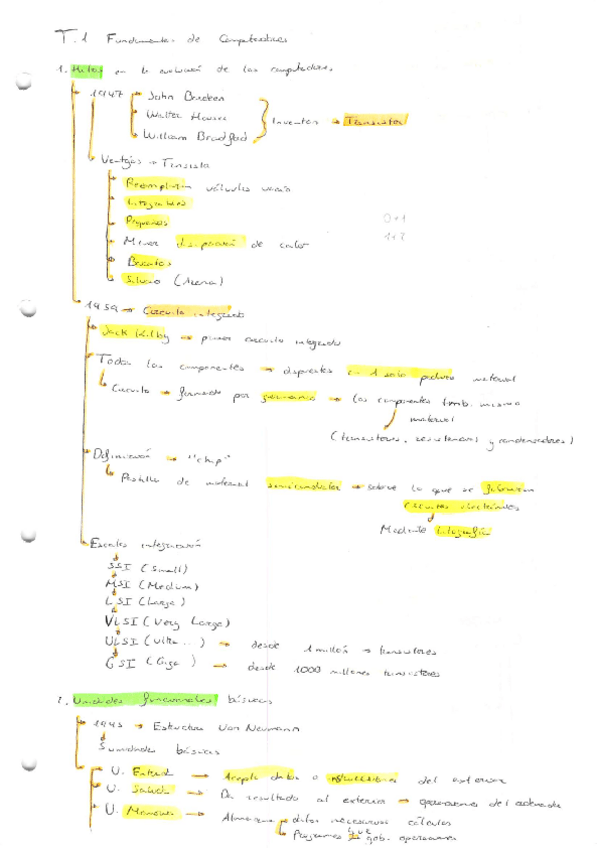 T.1 Fundamentos de Computadores
1. Hitos en la evolución de los computadores.
1947 → John Bardeen
Walter Houser
William Bradford
Inventan → Transistor
Ventajas → Transistor
Reemplazan válvulas vacío
Integrables
Pequeños
0+1
Menor disipación de calor
1+2
Baratos
Silicio (Arena)
1959 → Circuito integrado
Jack Kilby → primer circuito integrado
Todos los componentes → dispuestos en 1 solo pedazo material
Circuito → formado por germanio → los componentes tamb. mismo
material
(transistores, resistencias y condensadores)
Definición → "chip"
Pastilla de material semiconductor → sobre la que se fabrican
circuitos electrónicos
Mediante litografía
Escalas integración
SSI (Small)
MSI (Medium)
LSI (Large)
VLSI (Very Large)
ULSI (Ultra...) → desde 1 millón → transistores
GSI (Giga) → desde 1000 millones transistores
2. Unidades funcionales básicas
→ Estructura Von Neumann
5 unidades básicas
U. Entrada → Acepta datos o del exterior
U. Salida → Da resultado al exterior → operaciones del
U. Memoria → Almacena datos necesarios cálculos
Programas que gob. operaciones